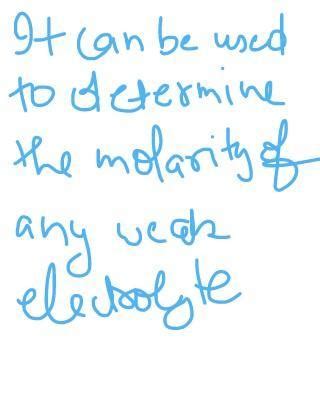 It can be used
to determine
the molarity of
any weak
electrolyte